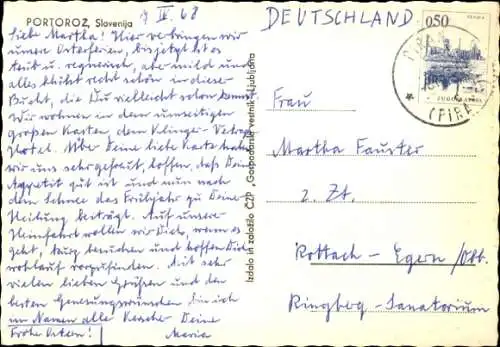 PORTOROŽ, Slovenija
9 IV. 68
Liebe Martha! Hier verbringen wir
unsere Osterferien, bis jetzt ist es
trüb u. regnerisch, aber mild und
alles blüht recht schön in dieser
Bucht, die Du vielleicht schon kennst.
Wir wohnen in dem umseitigen
großen Kasten, dem
Hotel. Über Deine liebe Karte haben
wir uns sehr gefreut, hoffen, daß Dein
Appetit gut ist und nun nach
dem Schnee das Frühjahr zu Deiner
Heilung beiträgt. Auf unserer
Heimfahrt wollen wir Dich, wenn es
geht, kurz besuchen und hoffen Dich
wohlauf vorzufinden. Mit sehr
vielen lieben Grüßen und den
besten Genesungswünschen bin ich
im Namen aller Deine
Frohe Ostern! Maria
Izdalo in založilo ČZP „Gospodarski vestnik" Ljubljana
DEUTSCHLAND
050
JUGOSLAVIJA
(PIRAN)
Frau
Martha Fauster
z. Zt.
Rottach-Egern/Obb.
Ringberg-Sanatorium